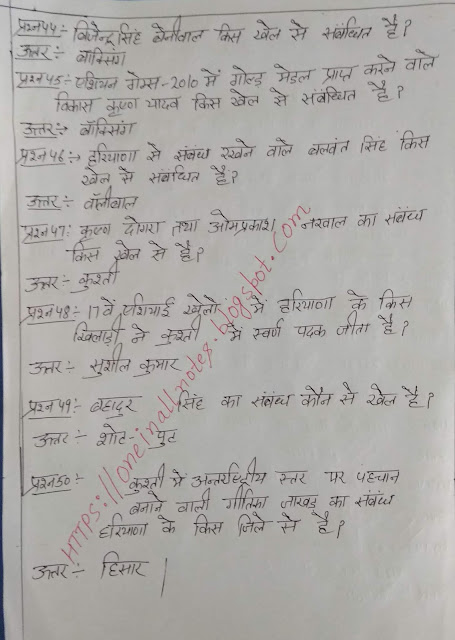 प्रश्न44ः- विजेन्द्र सिंह बेनीवाल किस खेल से संबंधित है?
उत्तर ः- बॉक्सिंग
प्रश्न45ः- एशियन गेम्स-2010 में गोल्ड मेडल प्राप्त करने वाले
विकास कृष्ण यादव किस खेल से संबंधित है?
उत्तरः- बॉक्सिंग
प्रश्न46ः- हरियाणा से संबंध रखने वाले बलवंत सिंह किस
खेल से संबंधित है?
उत्तर ः- वॉलीबाल
प्रश्न47ः- कृष्ण दोगरा तथा ओमप्रकाश नरवाल का संबंध
किस खेल से है?
उत्तरः- कुश्ती
प्रश्न48ः- 17वें एशियाई खेलों में हरियाणा के किस
खिलाड़ी ने कुश्ती में स्वर्ण पदक जीता है?
उत्तर ः- सुशील कुमार
प्रश्न49ः- बहादुर सिंह का संबंध कौन से खेल है?
उत्तर ः- शोट-पुट
प्रश्न50ः- कुश्ती में अन्तर्राष्ट्रीय स्तर पर पहचान
बनाने वाली गीतिका जाखड़ का संबंध
हरियाणा के किस जिले से है?
उत्तर ः- हिसार |
HTTPS://oneinallnotes.blogspot.com